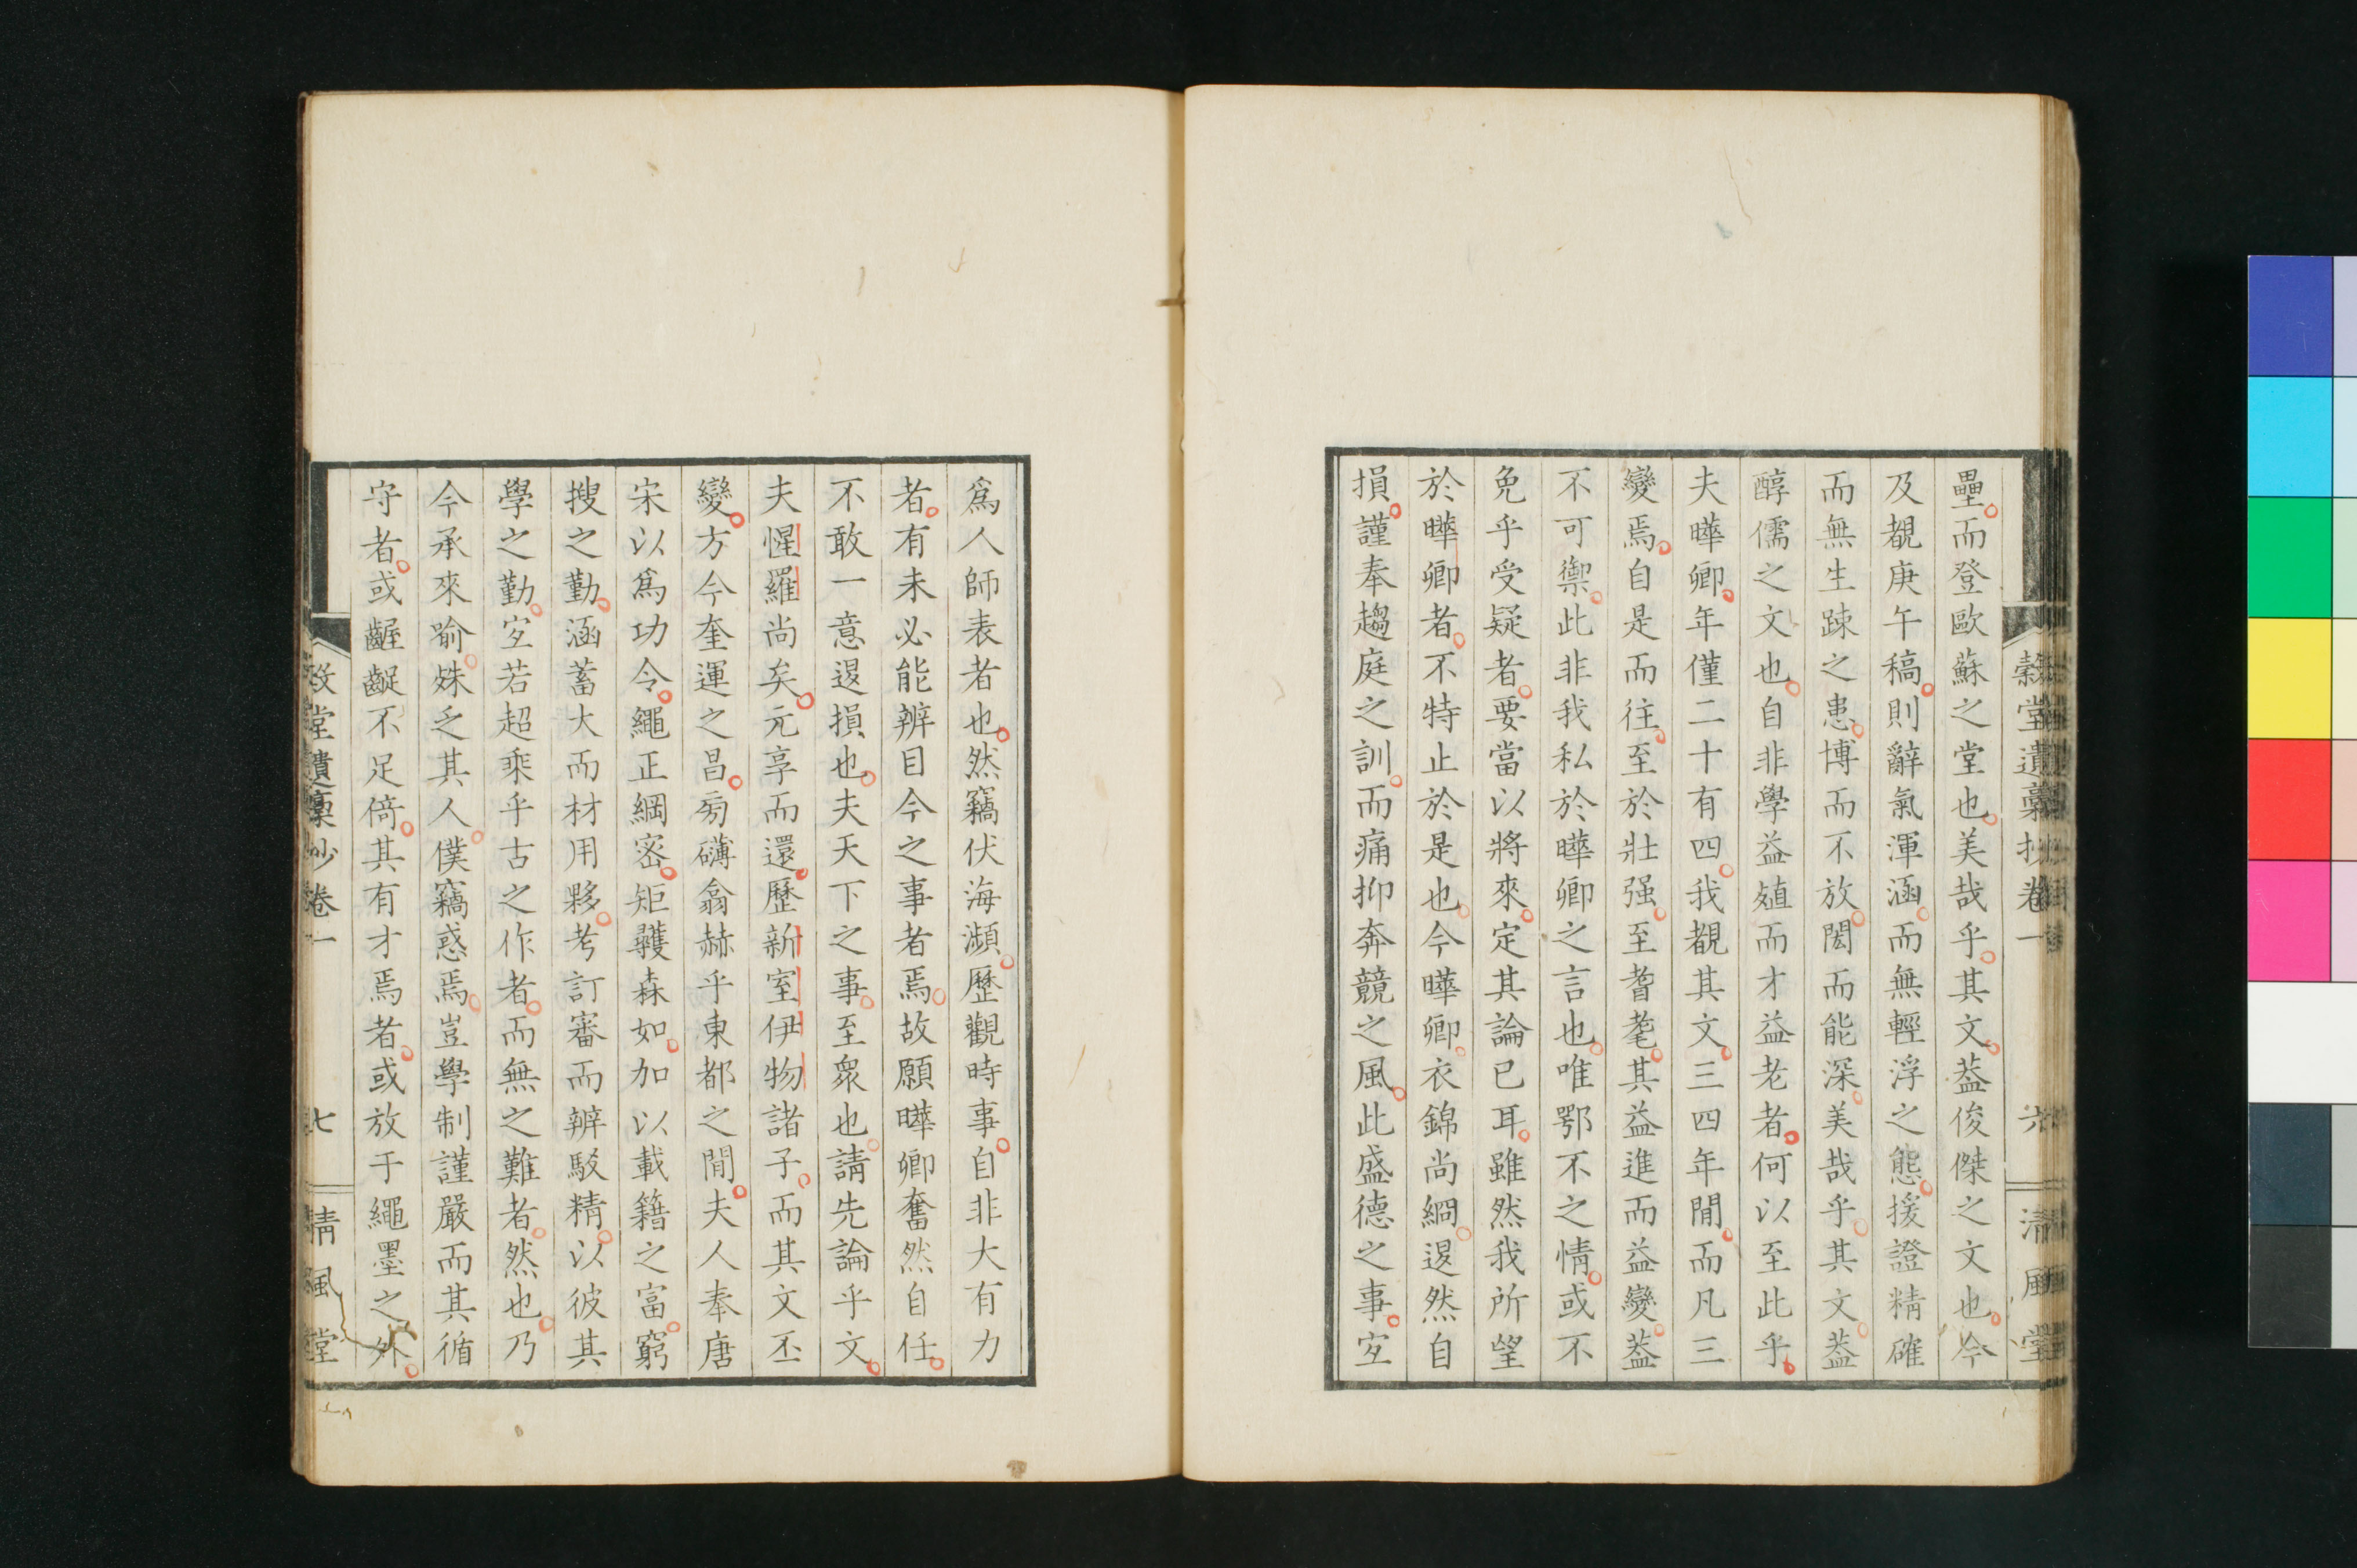 穀堂遺稾抄卷一 六 清風堂
壘而登歐蘇之堂也美哉乎其文葢俊傑之文也今
及覩庚午稿則辭氣渾涵而無輕浮之態援證精確
而無生踈之患博而不放閎而能深美哉乎其文葢
醇儒之文也自非學益殖而才益老者何以至此乎
夫曄卿年僅二十有四我覩其文三四年間而凡三
變焉自是而往至於壯强至耆耄其益進而益變葢
不可禦此非我私於曄卿之言也唯鄂不之情或不
免乎受疑者要當以將來定其論已耳雖然我所望
於曄卿者不特止於是也今曄卿衣錦尚絅退然自
損謹奉趨庭之訓而痛抑奔競之風此盛德之事宜
爲人師表者也然竊伏海瀕歷觀時事自非大有力
者有未必能辨目今之事者焉故願曄卿奮然自任
不敢一意退損也夫天下之事至衆也請先論乎文
夫惺羅尚矣元享而還歷新室伊物諸子而其文丕
變方今奎運之昌旁礴翕赫乎東都之間夫人奉唐
宋以爲功令繩正綱密矩彠森如加以載籍之富窮
搜之勤涵蓄大而材用夥考訂審而辨駁精以彼其
學之勤宜若超乘乎古之作者而無之難者然也乃
今承來喻姝乏其人僕竊惑焉豈學制謹嚴而其循
守者或齷齪不足倚其有才焉者或放于繩墨之外
穀堂遺稾抄卷一 七 清風堂